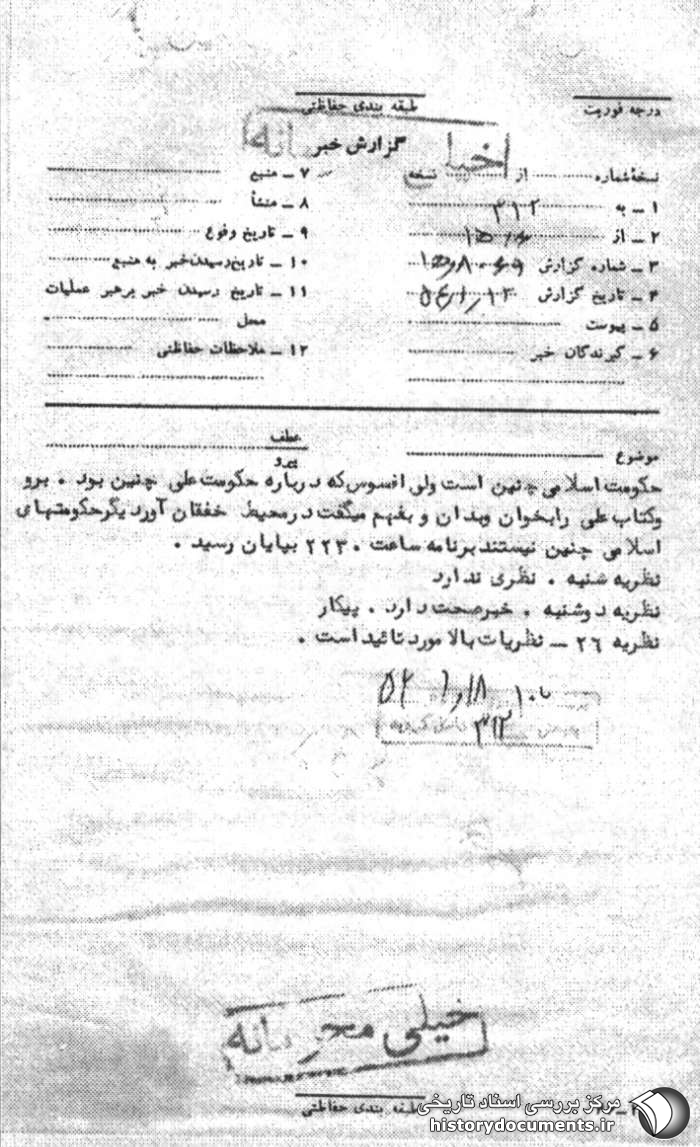 درجه فوریت
طبقه بندی حفاظتی
خیلی
گزارش خبر
نسخه شماره ........ از ........ نسخه
۱ ـ به ۳۱۲
۲ ـ از
۳ ـ شماره گزارش
۴ ـ تاریخ گزارش
۵ ـ پیوست
۶ ـ گیرندگان خبر
۷ ـ منبع
۸ ـ منشأ
۹ ـ تاریخ وقوع
۱۰ ـ تاریخ رسیدن خبر به منبع
۱۱ ـ تاریخ رسیدن خبر برهبر عملیات
محل
۱۲ ـ ملاحظات حفاظتی
موضوع
عطف
پیرو
حکومت اسلامی چنین است ولی افسوس که درباره حکومت علی چنین بود . برو
وکتاب علی رابخوان وبدان و بفهم میگفت درمحیط خفقان آوردیگرحکومتهای
اسلامی چنین نیستند برنامه ساعت ۲۲۳۰ بپایان رسید .
نظریه شنبه . نظری ندارد
نظریه دوشنبه . خبرصحت دارد . پیکار
نظریه ۲۶ ـ نظریات بالا مورد تائید است .
۳۱۲
خیلی محرمانه
طبقه بندی حفاظتی
مرکز بررسی اسناد تاریخی
historydocuments.ir